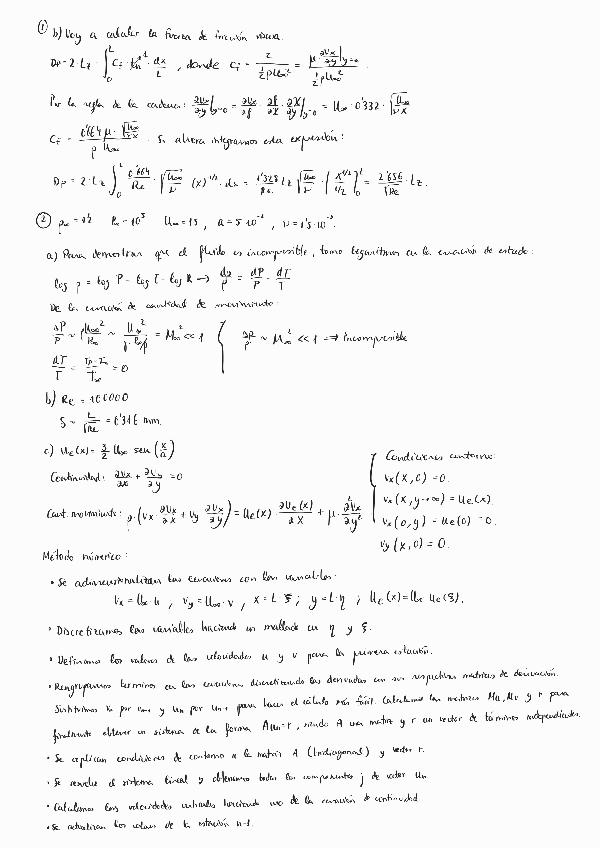 ① b) Voy a calcular la fuerza de fricción viscosa.
Dp = 2·Lz · ∫₀ᴸ Cf · dx/L , donde Cf = τ / (½ρU∞²) = μ · ∂Vx/∂y|y=0 / (½ρU∞²)
Por la regla de la cadena: ∂Vx/∂y|y=0 = ∂Vx/∂f · ∂f/∂y|y=0 = U∞ · 0'332 · √(U∞/νx)
Cf = 0'664 μ · √(U∞/νx) / (ρ U∞) . Si ahora integramos esta expresión:
Dp = 2·Lz ∫₀ᴸ 0'664/Re · √(U∞/ν) (x)^(-1/2) · dx = 1'328/Re Lz √(U∞/ν) · [x^(1/2)/(1/2)]₀ᴸ = 2'656/√Re · Lz.
② ρ∞ = 1'2 P∞ = 10⁵ U∞ = 15 , a = 5·10⁻² , ν = 1'5·10⁻⁵
a) Para demostrar que el fluido es incompresible, tomo logaritmos en la ecuación de estado:
log ρ = log P - log T - log R → dρ/ρ = dP/P - dT/T
De la ecuación de cantidad de movimiento:
ΔP/P ~ ρU∞²/P∞ ~ U∞²/(γ·P∞/ρ) = M∞² << 1
Δρ/ρ ~ M∞² << 1 ⇒ Incompresible
dT/T = (Tp-T∞)/T∞ = 0
b) Re = 100000
δ ~ L/√Re = 0'316 mm.
c) Ue(x) = 3/2 U∞ sen (x/a)
Continuidad: ∂Vx/∂x + ∂Vy/∂y = 0
Cant. movimiento: ρ·(Vx · ∂Vx/∂x + Vy ∂Vx/∂y) = Ue(x) · ∂Ue(x)/∂x + μ · ∂²Vx/∂y²
Condiciones contorno:
Vx(x,0) = 0.
Vx(x,y→∞) = Ue(x).
Vx(0,y) = Ue(0) = 0.
Vy(x,0) = 0.
Método númerico:
• Se adimensionalizan las ecuaciones con las variables:
Vx = U∞·u ; Vy = U∞·v , x = L·ξ ; y = L·η ; Ue(x) = U∞ Ue(ξ).
• Discretizamos las variables haciendo un mallado en η y ξ.
• Definimos los valores de las velocidades u y v para la primera estación.
• Reagrupamos terminos en las ecuaciones discretizando las derivadas en sus respectivas matrices de derivación.
Sustituimos Vn por Vn-1 y Un por Un-1 para hacer el cálculo más fácil. Calculamos las matrices Mu, Mv y r para
finalmente obtener un sistema de la forma A·Un = r, siendo A una matriz y r un vector de términos independientes.
• Se aplican condiciones de contorno a la matriz A (tridiagonal) y vector r.
• Se resuelve el sistema lineal y obtenemos todas las componentes j de vector Un.
• Calculamos las velocidades verticales haciendo uso de la ecuación de continuidad.
• Se actualizan los valores de la estación n-1.